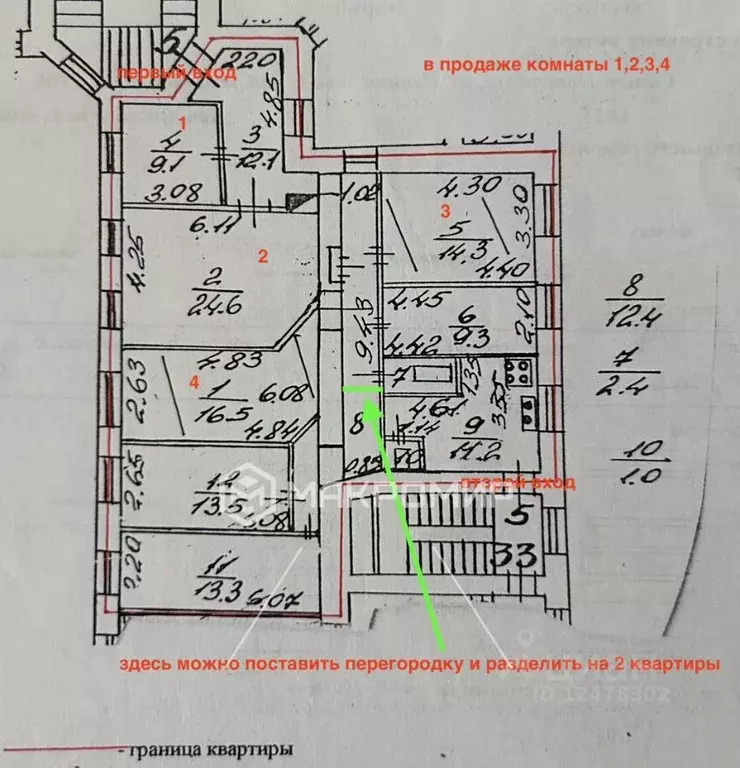 5
первый вход
220
в продаже комнаты 1,2,3,4
4.85
1
4
9.1
3
12.1
3.08
1.02
4.30
3
3.30
6.11
5
14.3
4.25
2
4.40
2
24.6
4.45
6
9.3
2.10
8
12.4
9.43
4.42
4.83
7
1.35
7
2.4
2.63
4
1
16.5
6.08
4.61
3.55
4.84
8
1.14
9
11.2
10
1.0
2.65
0.85
13.5
МАКРОМИР
второй вход
5
33
11
13.3
6.07
здесь можно поставить перегородку и разделить на 2 квартиры
циан
- граница квартиры